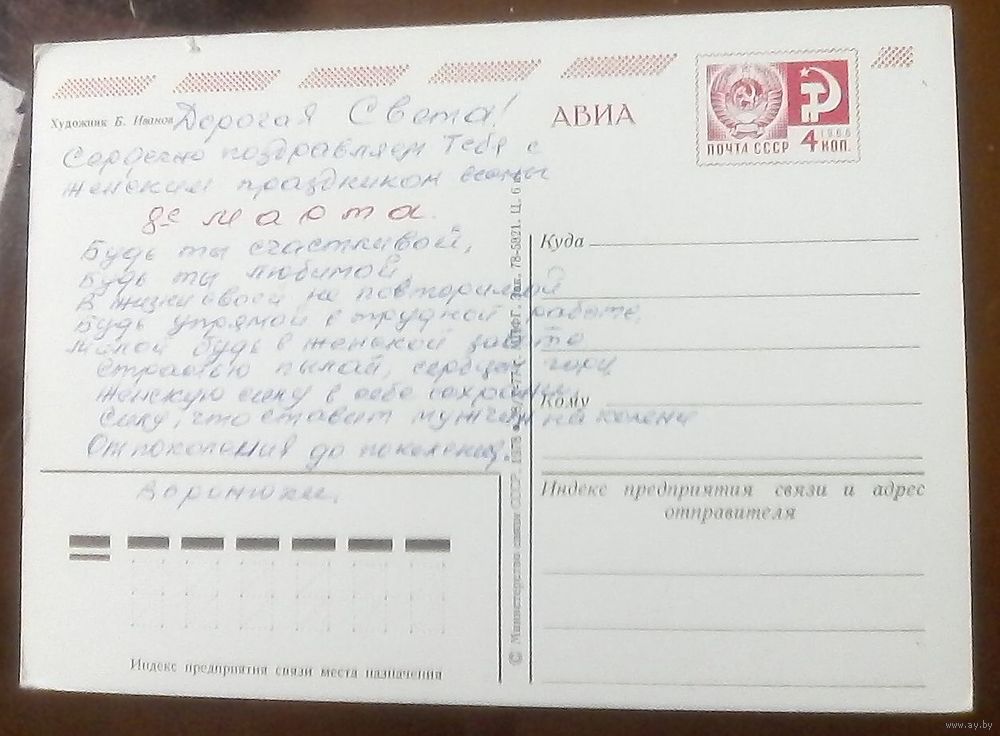 Художник Б. Иванов
Дорогая Света!
Сердечно поздравляем Тебя с
женским праздником весны
8е марта.
Будь ты счастливой,
Будь ты любимой,
В жизни своей не повторимой
Будь упрямой в трудной работе,
Милой будь в женской заботе
Страстью пылай, сердцем гори
Женскую силу в себе сохрани,
Силу, что ставит мужчин на колени
От поколения до поколения.
Воронюки.
АВИА
ПОЧТА СССР 4 КОП.
1966
Куда
Кому
Индекс предприятия связи и адрес
отправителя
Индекс предприятия связи места назначения
© Министерство связи СССР. 1978
Зак. 78-5921. Ц. 6 к.
www.ay.by